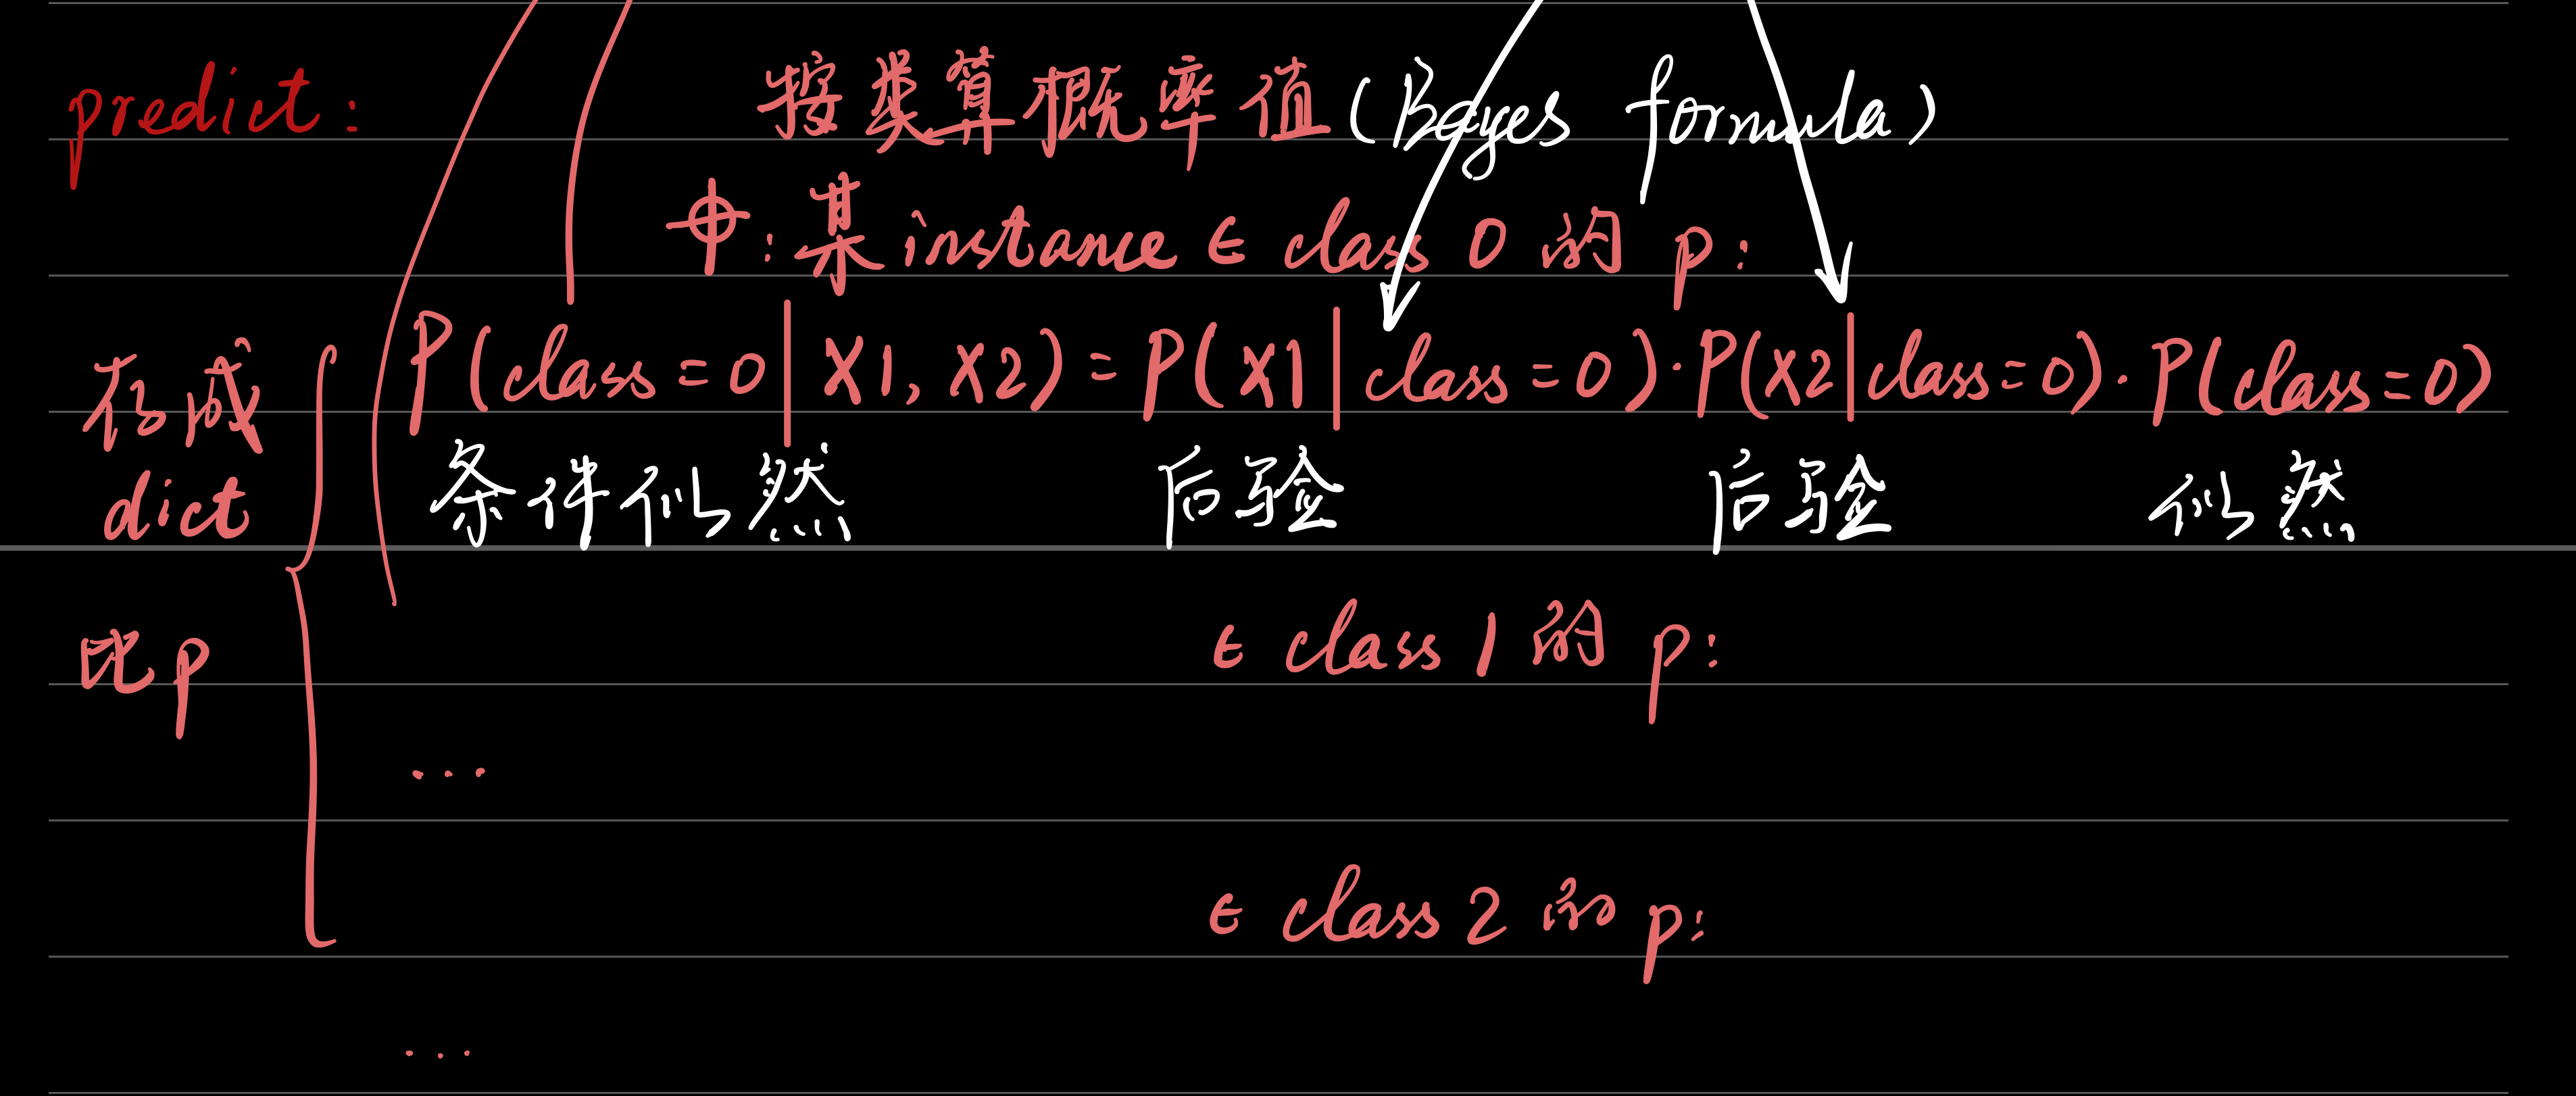 predict:
按类算概率值 (Bayes formula)
中: 某 instance ∈ class 0 的 p:
存成
dict
P(class = 0 | X1, X2) = P(X1 | class = 0) · P(X2 | class = 0) · P(class = 0)
条件似然 后验 后验 似然
比 p
∈ class 1 的 p:
...
∈ class 2 的 p:
...